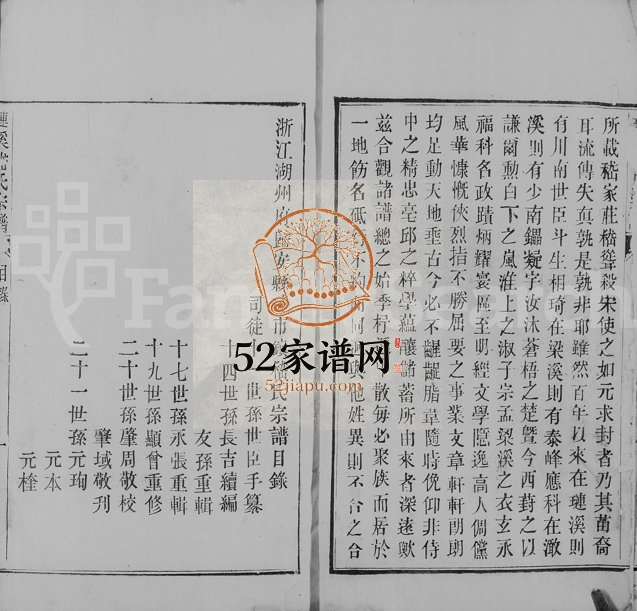 所載嵇家莊稽聳殺宋使之如元求封者乃其苗裔
耳流傳失眞孰是孰非耶雖然百年以來在璉溪則
有川南世臣斗生相琦在梁溪則有泰峰應科在澉
溪則有少南鑼凝字汝沐蒼梧之楚曁今西葑之以
謙閣勲白下之嵐淮上之淑子宗孟梁溪之衣玄永
福科名政蹟炳耀寰區至明經文學隱逸高人倜儻
風華慷慨俠烈指不勝屈要之事業文章軒軒朗朗
均足動天地垂古今必不齷齪脂韋隨時俛仰非侍
中之精忠亳邱之粹學蘊釀儲蓄所由來者深遠歟
茲合觀諸譜總之始季杼
散每必聚族而居於
一地筋名
他姓異則不合之合
浙江湖州府歸安縣
市
氏宗譜目錄
司徒
世孫世臣手纂
十四世孫長吉續編
友孫重輯
十七世孫承張重輯
十九世孫顯曾重修
二十世孫肇周敬校
肇域敬刊
二十一世孫元珣
元本
元桂
溪
氏宗譜
目錄
一
52家谱网
52jiapu.com